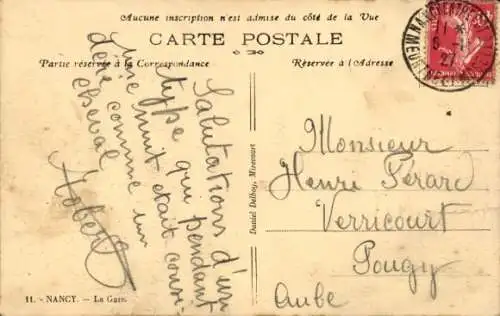 Aucune inscription n'est admise du côté de la Vue
CARTE POSTALE
Partie réservée à la Correspondance
Réservée à l'Adresse
Salutations d'un
type qui pendant
une nuit était consi-
déré comme un
cheval
Robert
Daniel Delboy, Mirecourt
Monsieur
Henri Férard
Verricourt
Pougy
Aube
11. - NANCY. - La Gare.